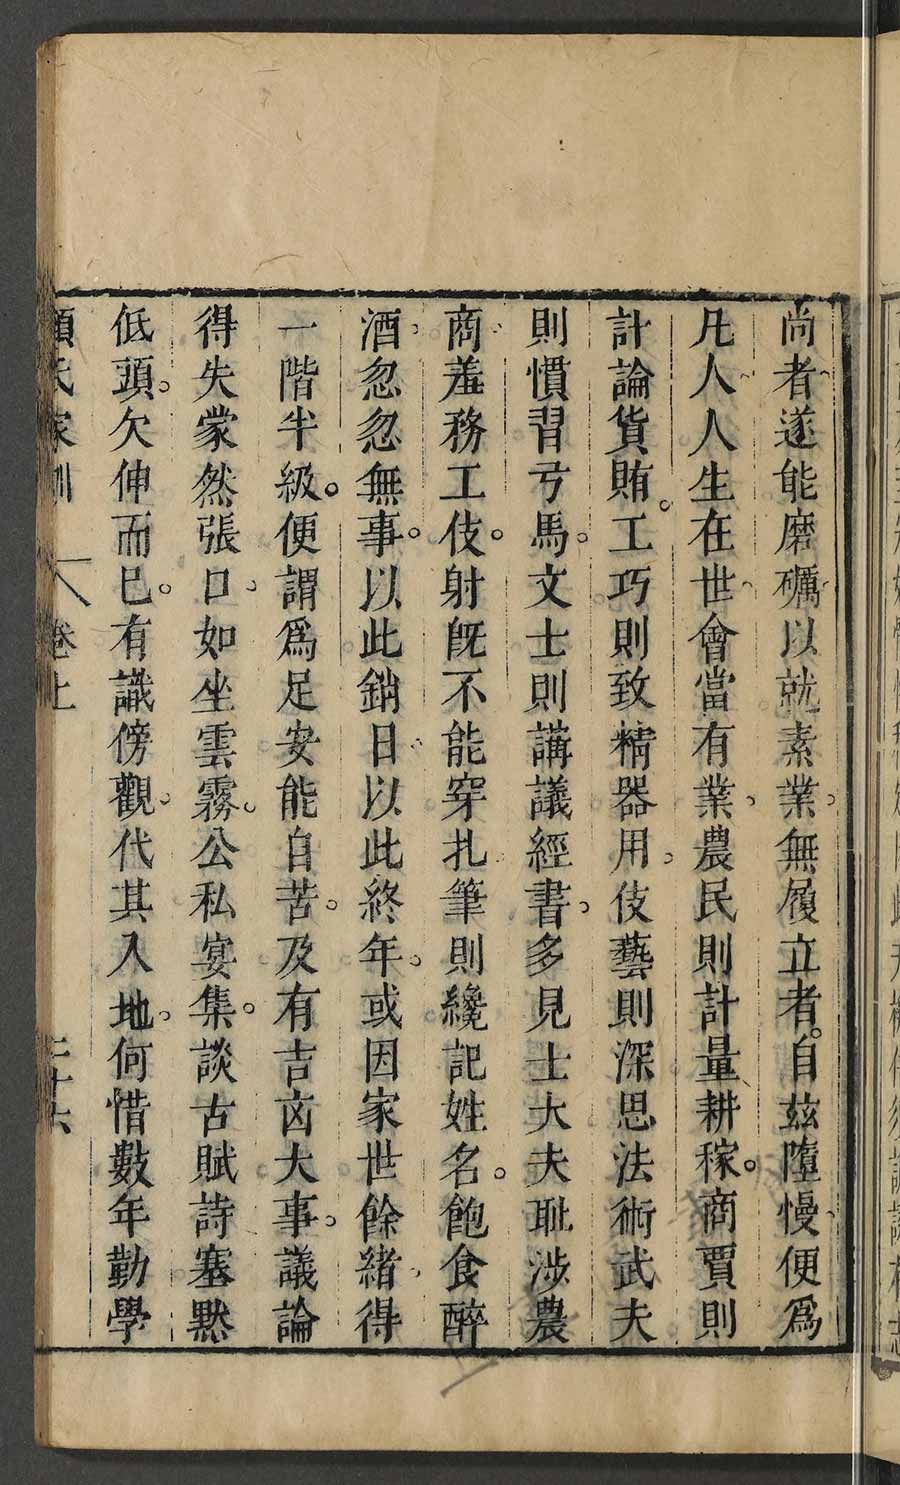 尚者遂能磨礪以就素業無履立者自茲隳慢便爲
凡人人生在世會當有業農民則計量耕稼商賈則
計論貨賄工巧則致精器用伎藝則深思法術武夫
則慣習弓馬文士則講議經書多見士大夫耻涉農
商羞務工伎射旣不能穿扎筆則纔記姓名飽食醉
酒忽忽無事以此銷日以此終年或因家世餘緒得
一階半級便謂爲足安能自苦及有吉㐫大事議論
得失蒙然張口如坐雲霧公私宴集談古賦詩塞默
低頭欠伸而已有識傍觀代其入地何惜數年勤學
顏氏家訓 卷上 二十六